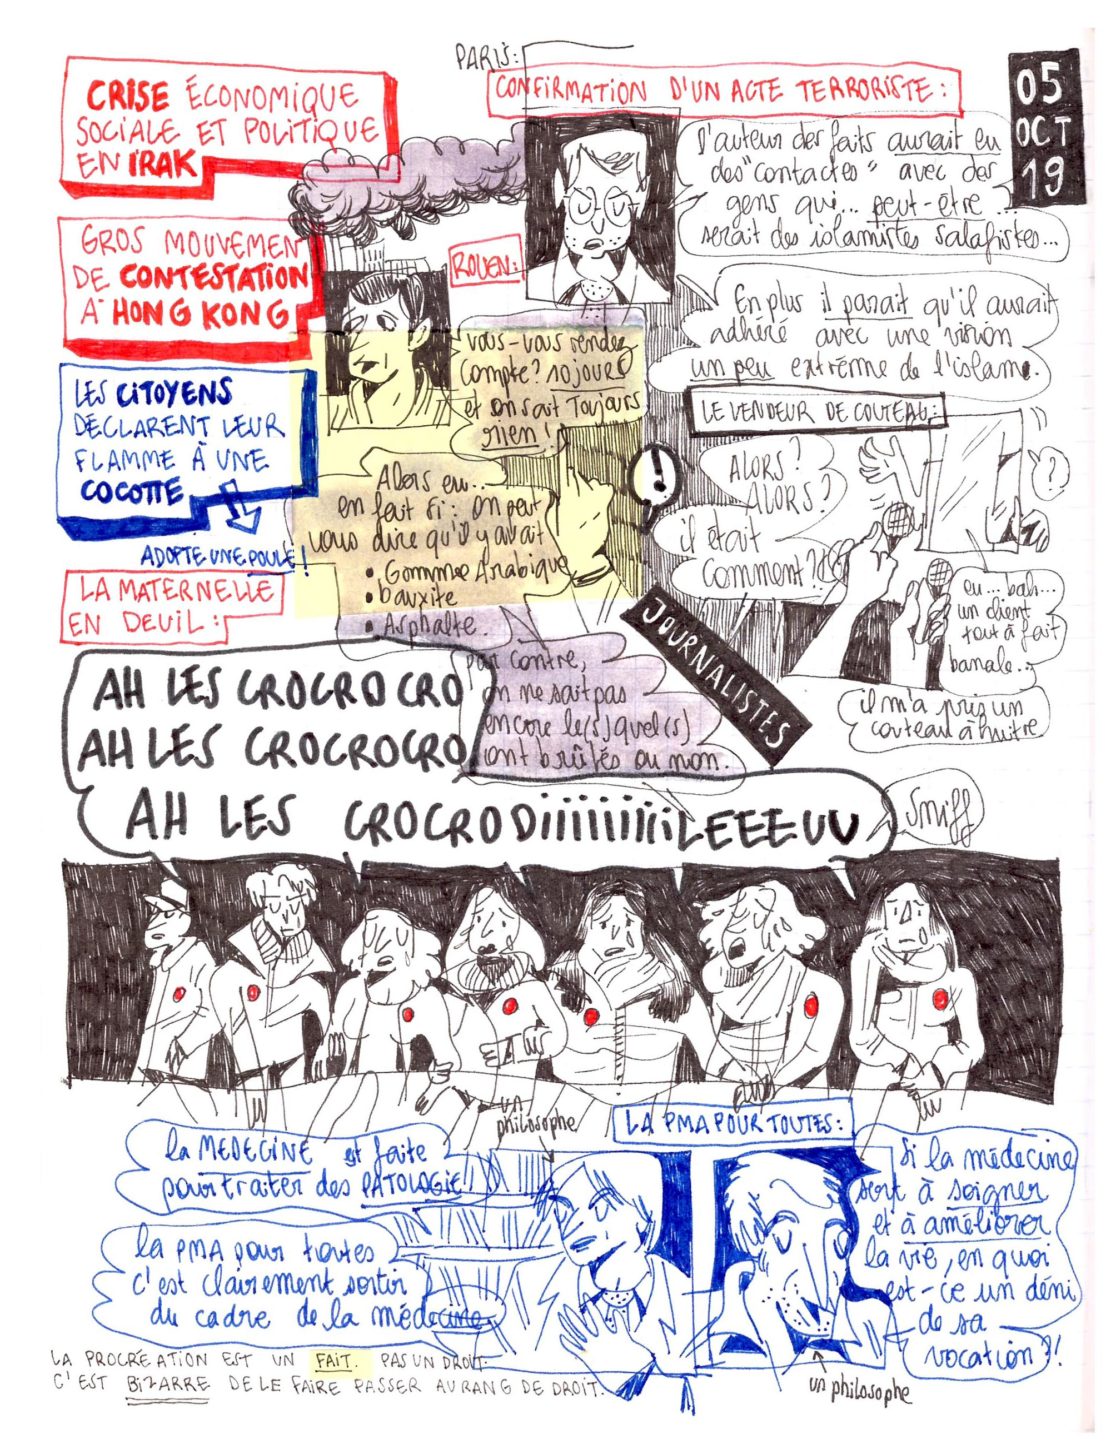 05
OCT
19
CRISE ÉCONOMIQUE
SOCIALE ET POLITIQUE
EN IRAK
GROS MOUVEMEN
DE CONTESTATION
À HONG KONG
LES CITOYENS
DÉCLARENT LEUR
FLAMME À UNE
COCOTTE
ADOPTE UNE POULE!
PARIS:
CONFIRMATION D'UN ACTE TERRORISTE:
l'auteur des faits aurait eu
des "contactes" avec des
gens qui... peut-être...
serait des islamistes salafistes...
En plus il parait qu'il aurait
adhéré avec une vision
un peu extrême de l'islam.
ROUEN:
vous-vous rendez
compte? 10 jours
et on sait toujours
rien!
Alors eu...
en fait si: on peut
vous dire qu'il y avait
• Gomme Arabique
• bauxite
• Asphalte.
par contre,
on ne sait pas
encore le(s)quel(s)
ont brûlés ou non.
!
JOURNALISTES
LE VENDEUR DE COUTEAU:
ALORS?
ALORS?
il était
comment?!
?
eu... bah...
un client
tout à fait
banale...
il m'a pris un
couteau à huitre
LA MATERNELLE
EN DEUIL:
AH LES CROCRO CRO
AH LES CROCROCRO
AH LES CROCRODiiiiiiiiiLEEEUU
Sniff
LA PMA POUR TOUTES:
un
philosophe
la MEDECINE est faite
pour traiter des PATOLOGIE
la PMA pour toutes
c'est clairement sortir
du cadre de la médecine
Si la médecine
sert à soigner
et à améliorer
la vie, en quoi
est-ce un déni
de sa
vocation?!
un philosophe
LA PROCRÉATION EST UN FAIT. PAS UN DROIT.
C'EST BIZARRE DE LE FAIRE PASSER AU RANG DE DROIT.